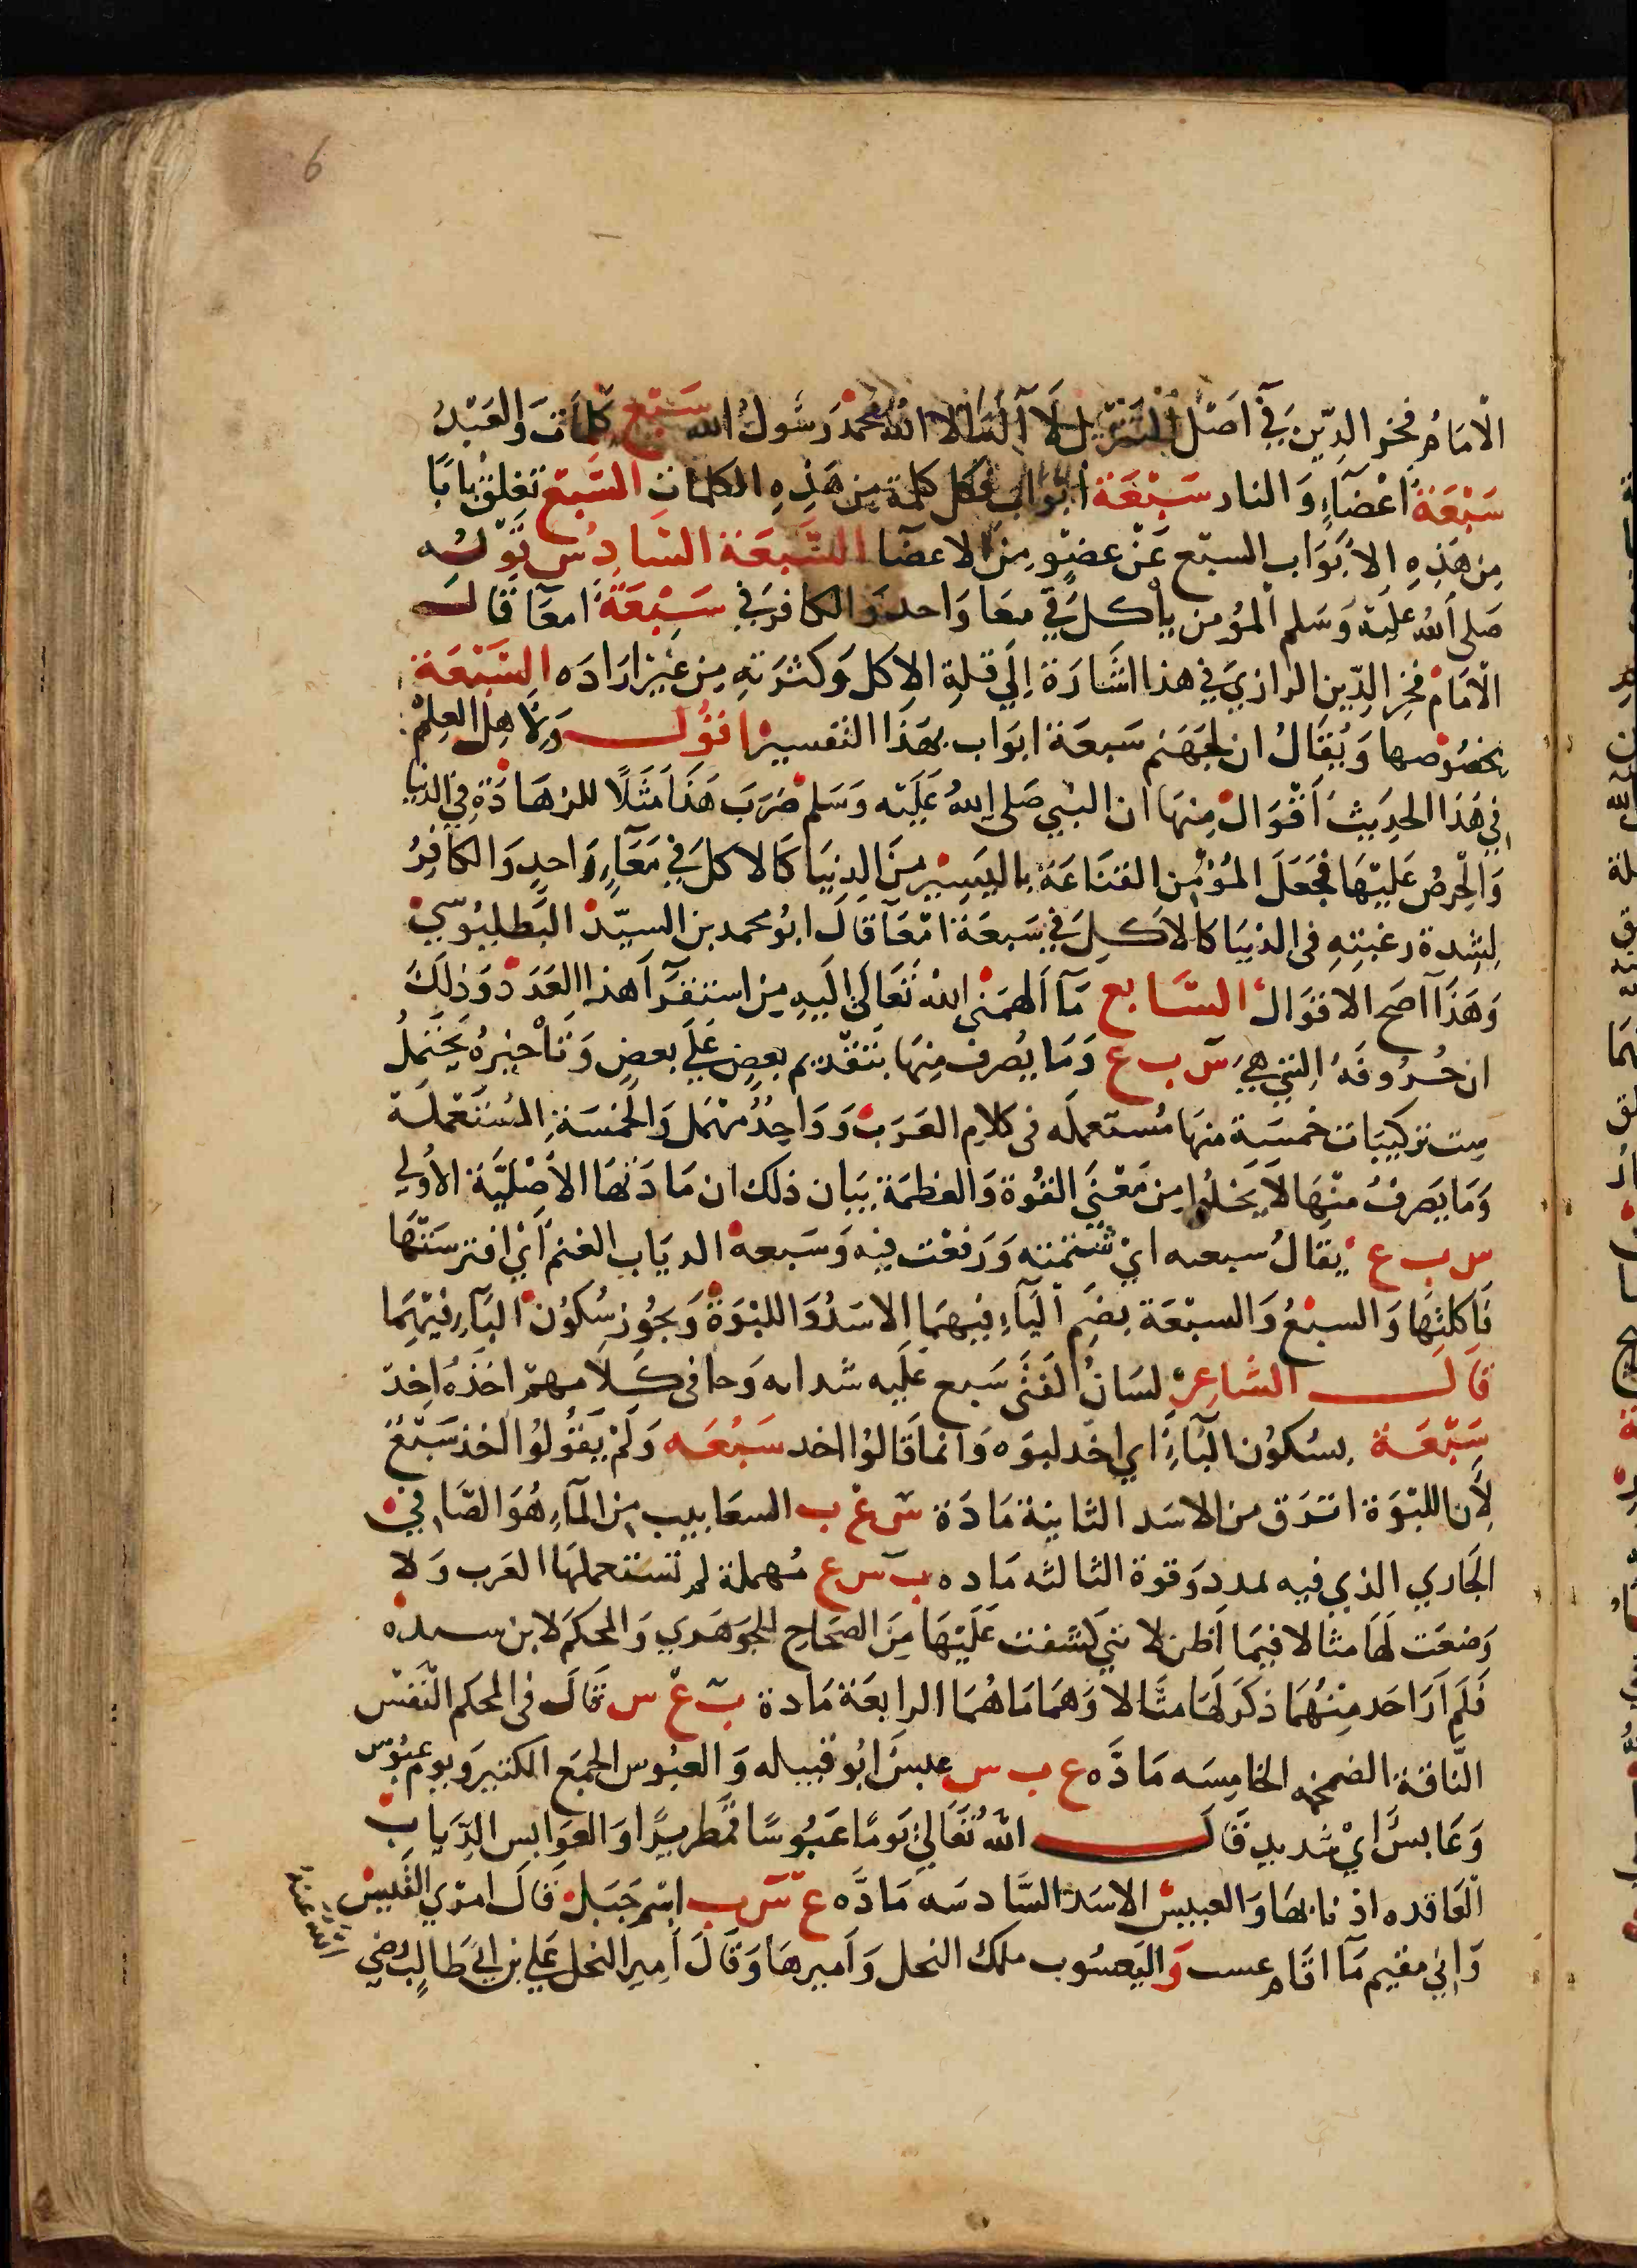 6
الامَامُ فخر الدّين في آصْل التنزيل لَا آلَه الا الله محمّد رَسُولُ الله سَبْع كلمَات وَالعَبْدُ
سَبْعَة اعْضَآءٍ وَالنار سَبْعَة ابْوَاب فكل كلمة من هَذِهِ الكلمات السَّبْع تغلق بابًا
مِن هَذِهِ الابْوَاب السبْع عَنْ عضوٍ مِن الاعضَا السَّبْعَة السَّادِسُ قَوْلُه
صَلى الله عليْه وَسَلم المؤمن يأكل في معَا وَاحد وَالكافر في سَبْعَة امعَا قَالَ
الامَامُ فخر الدِّين الرازي في هذا اشَارَة إلي قلةِ الاكل وَكثرتهِ مِن غَيْر ارَادَه السَّبْعَة
بخصُوصها وَيُقَالُ ان لجهَنم سَبعَة ابوَاب بهَذا التفسير اقوُل وَلاهل العِلمْ
في هَذا الحدِيث اقْوَالْ مِنهَا ان النبي صَلى اللهُ عَلَيْه وَسَلم ضرَبَ هَذا مَثَلًا للزهَادَةِ في الدنيَا
وَالْحِرصُ عَليْهَا فجعَلَ المؤمن القنَاعَة باليَسِيْر مِنَ الدنيَا كالاكل في مَعَآءٍ وَاحدٍ وَالكافرُ
لِشدة رغبتهِ في الدنيَا كالاكل في سَبعَة امْعَآ قالَ ابُو محمد بن السيّد البَطليُوسيّ
وَهَذَا آصَح الاقوَالْ السَّابع مَآ الهمَني الله تعَالي إليهِ مِن استقرآ هذا العَدَدْ وَذلَكَ
ان حُرُوفهُ التي هيَ س ب ع وَمَا يُصرف مِنهَا بتقْديم بعضٍ عَلَي بعضٍ وَتأخيْرهُ يحتملُ
ست تركيبَات خمسَة منهَا مُستعمله في كلامِ العَرَبْ وَوَاحِدُ مهْمَل وَالخمسَةِ المُستعْملَة
وَمَا يَصَرفُ منهَا لَا يَخلُوا مِن مَعْنَي القُوة وَالعظمَة بيَان ذلك ان مَادَتهَا الأصْليَّة الأولي
س ب ع يقالُ سبعه ايْ شتمته وَوَقعْت فيه وَسَبعهُ الدياب الغنم أيْ افترسَتهَا
فَاكلتهَا وَالسبعُ وَالسبعَة بضم البآءِ فيهمَا الاسَدُ وَاللبْوَةُ وَيجُوز سُكوْن البآءِ فيْهمَا
قَالَ الشاعِرْ لسَانُ الفتى سَبع عَلَيه شداته وَحا في كلَامهمْ اخَذهُ اخذ
سَبْعَة بسُكوُن البَآءِ اي اخذ لبوَه وَانما قَالوُا اخد سَبْعَه وَلَمْ يَقُولوُا اخذ سَبْعٌ
لأن اللبْوَة انزق من الاسَد الثانيَة مَادَة س ع ب السعابيب من المآءِ هُوَ الصَّافيْ
الجَاري الذي فيه مدد وَقوة الثالثه مَاده ب س ع مُهملة لم تستعملهَا العَرب وَلا
وَضعَت لهَا مثالا فيمَا اظن لانني كشفت عَلَيْهَا مِنَ الصحَاحِ للجوهَري وَالمحكم لابن سيده
فَلَم ارَ احَد مِنهُمَا ذكَر لهَا مثَالا وَهمَا مَا هُمَا الرابعَة مَادة ب ع س قَالَ في المحكم البَعُسْ
النَّاقة الضخمْه الخامِسَه مَادَّه ع ب س عبسَ ابُو قبيله وَالعبُوس الجمَع الكثير وَيومٌ عبُوس
وَعَابسَّ ايْ شديد قَالَ الله تعَالي يَومًا عَبُوسًا قمطريرًا وَالعوَابس الذِّيابْ
العَاقده اذنابهَا وَالعبيسْ الاسَد السَّادسَه مَادَّه ع س ب اسْم جَبَلْ قَالَ امري القيسْ
وَإني مقيم مَآ اقَام عسب وَاليَعسُوب ملك النحل وَأميرهَا وَقَالَ أمير النحل عَلي بن ابي طَالِبْ رضي
الله عنه